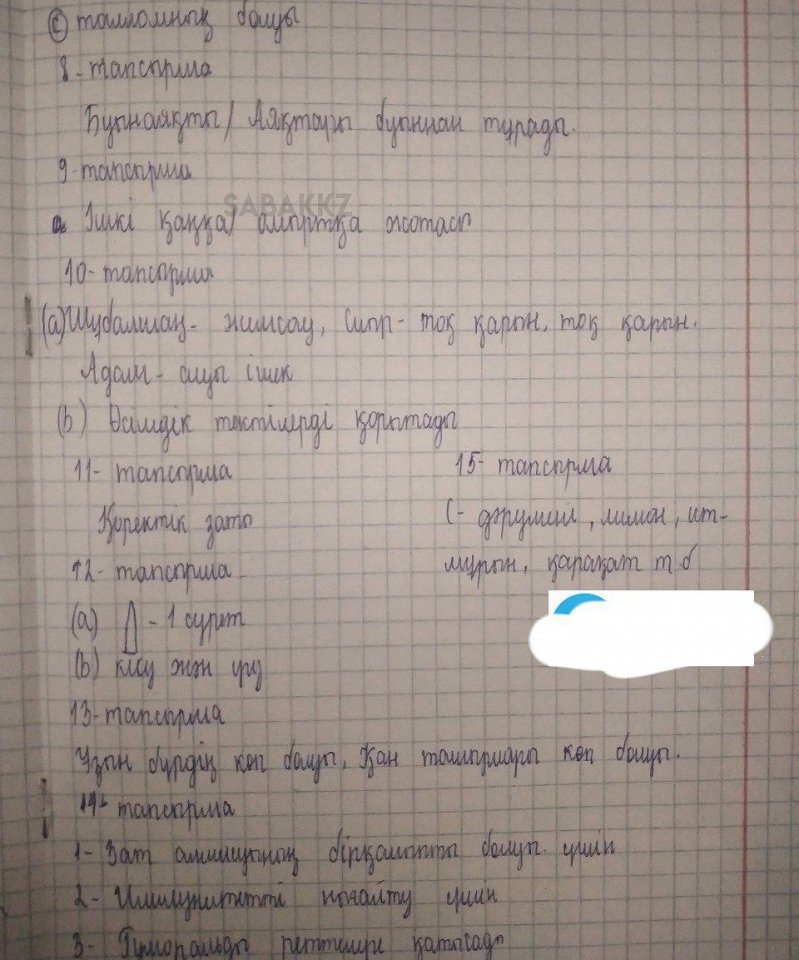 (c) талломның болуы
8-тапсырма
Буынаяқты/ Аяқтары буыннан тұрады.
9-тапсырма
SABAKKZ
а Ішкі қаңқа/ омыртқа жотасы
10-тапсырма
(а) Шұбалшаң- жемсау, Сиыр- тоқ қарын, тоқ қарын.
Адам- ащы ішек
(b) Өсімдік тектілерді қорытады
11- тапсырма
Қоректік заты
12- тапсырма
(а) - 1 сурет
(b) кесу және үзу
13-тапсырма
Ұзын бүрдің көп болуы, Қан тамырлары көп болуы.
14- тапсырма
1- Зат алмасуының бірқалыпты болуы үшін
2- Иммунитетті нығайту үшін
3- Гуморальды реттелуге қатысады
15- тапсырма
С- , лимон, ит-
мұрын, қарақат т.б